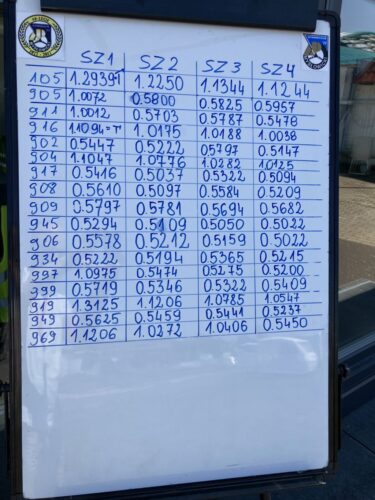 SZ1 SZ2 SZ3 SZ4
105 1.2939T 1.2250 1.1344 1.1244
905 1.0072 0.5800 0.5825 0.5957
911 1.0012 0.5703 0.5787 0.5478
916 1.1094=T 1.0175 1.0188 1.0038
902 0.5447 0.5222 0.5797 0.5147
904 1.1047 1.0776 1.0282 1.0125
917 0.5416 0.5037 0.5322 0.5094
908 0.5610 0.5097 0.5584 0.5209
909 0.5797 0.5781 0.5694 0.5682
945 0.5294 0.5109 0.5050 0.5022
906 0.5578 0.5212 0.5159 0.5022
934 0.5222 0.5194 0.5365 0.5215
997 1.0975 0.5474 0.5275 0.5200
999 0.5719 0.5346 0.5322 0.5409
919 1.3125 1.1206 1.0785 1.0547
949 0.5625 0.5459 0.5441 0.5237
969 1.1206 1.0272 1.0406 0.5450